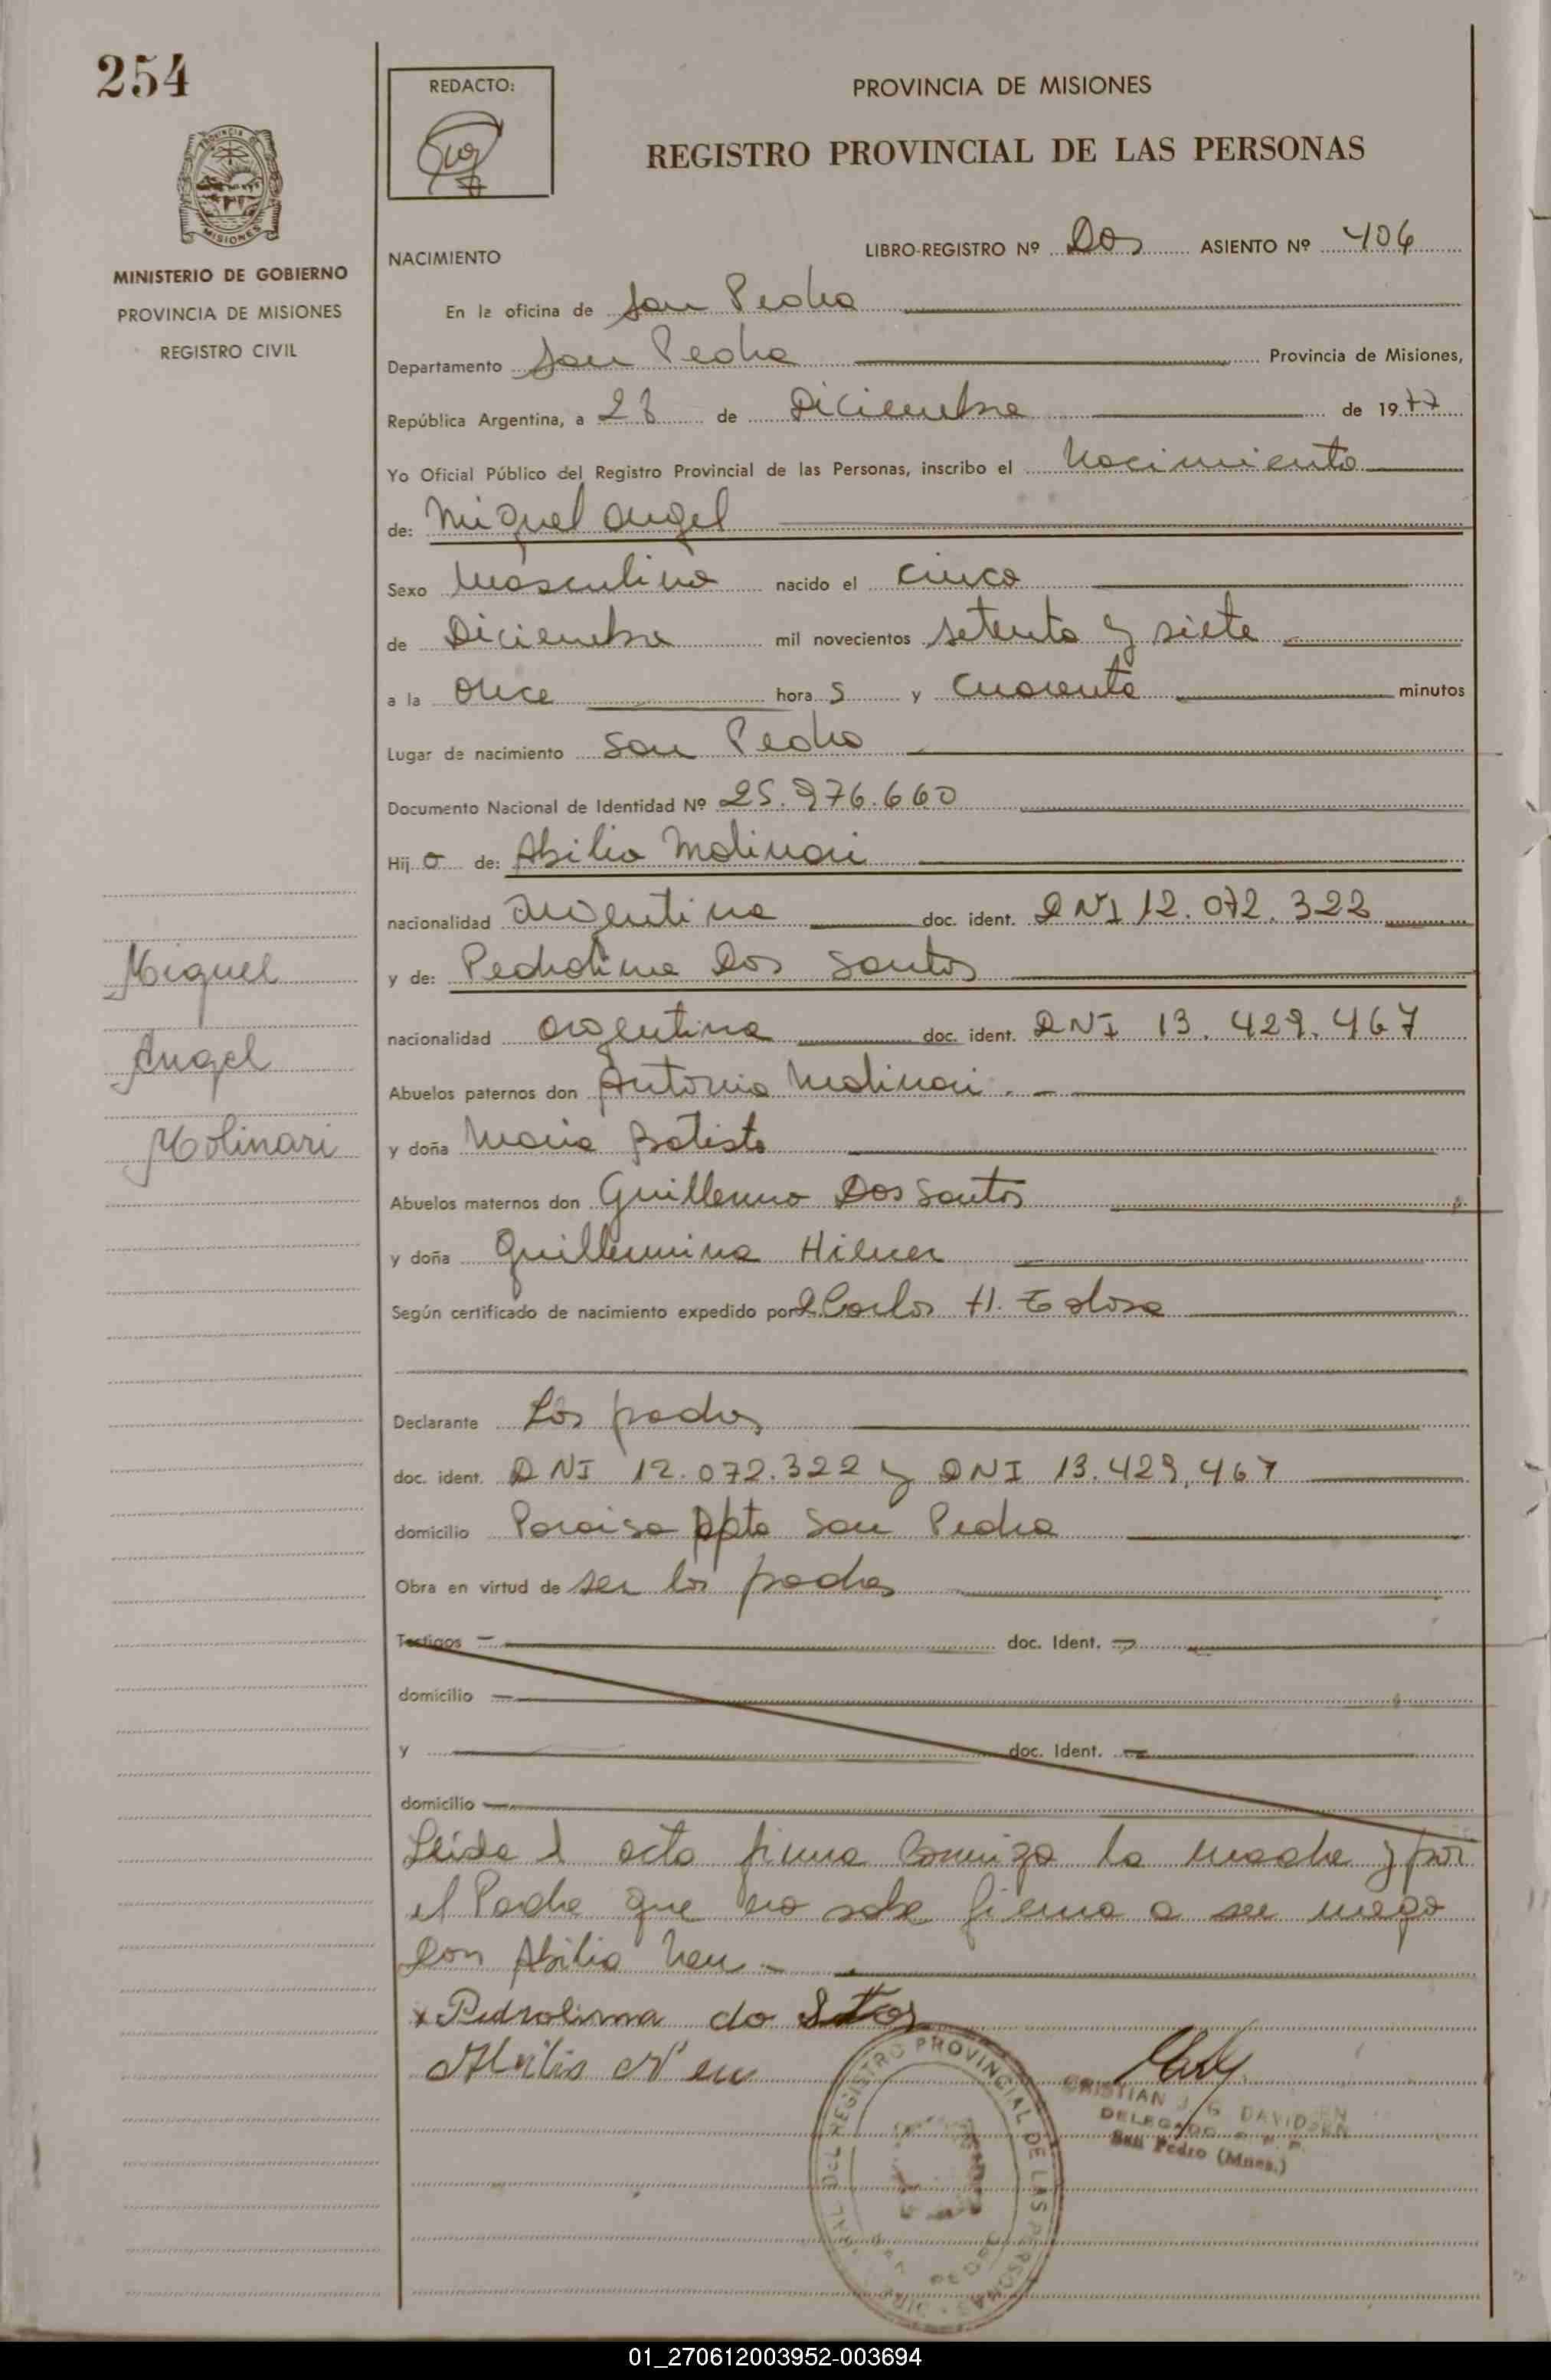 254
REDACTO:
PROVINCIA DE MISIONES
REGISTRO PROVINCIAL DE LAS PERSONAS
PROVINCIA
MISIONES
MINISTERIO DE GOBIERNO
PROVINCIA DE MISIONES
REGISTRO CIVIL
LIBRO-REGISTRO Nº Dos ASIENTO Nº 406
NACIMIENTO
En la oficina de San Pedro
Departamento San Pedro Provincia de Misiones,
República Argentina, a de Diciembre de 1977
Yo Oficial Público del Registro Provincial de las Personas, inscribo el Nacimiento
de: Miguel Angel
Sexo Masculino nacido el cinco
de Diciembre mil novecientos setenta y siete
a la once hora s y cuarenta minutos
Lugar de nacimiento San Pedro
Documento Nacional de Identidad Nº 25.976.660
Hij o de: Abilio Molinari
nacionalidad argentina doc. ident. DNI 12.072.322
y de: Pedrolina Dos Santos
nacionalidad argentina doc. ident. DNI 13.429.467
Abuelos paternos don Antonio Molinari
y doña Maria Batista
Abuelos maternos don Guillermo Dos Santos
y doña Guillermina
Según certificado de nacimiento expedido por Carlos H.
Declarante Los padres
doc. ident. DNI 12.072.322 y DNI 13.429.467
domicilio Paraiso Dpto San Pedro
Obra en virtud de ser los padres
Testigos doc. Ident.
domicilio
y doc. Ident.
domicilio
Leida el acta firma Conmigo la madre y por
el Padre que no sabe firma a su ruego
Don Abilio
x Pedrolima do Stos
Miguel
Angel
Molinari
REGISTRO PROVINCIAL DE LAS PERSONAS
CRISTIAN J. G. DAVIDSEN
DELEGADO R. P. P.
San Pedro (Mnes.)
01_270612003952-003694